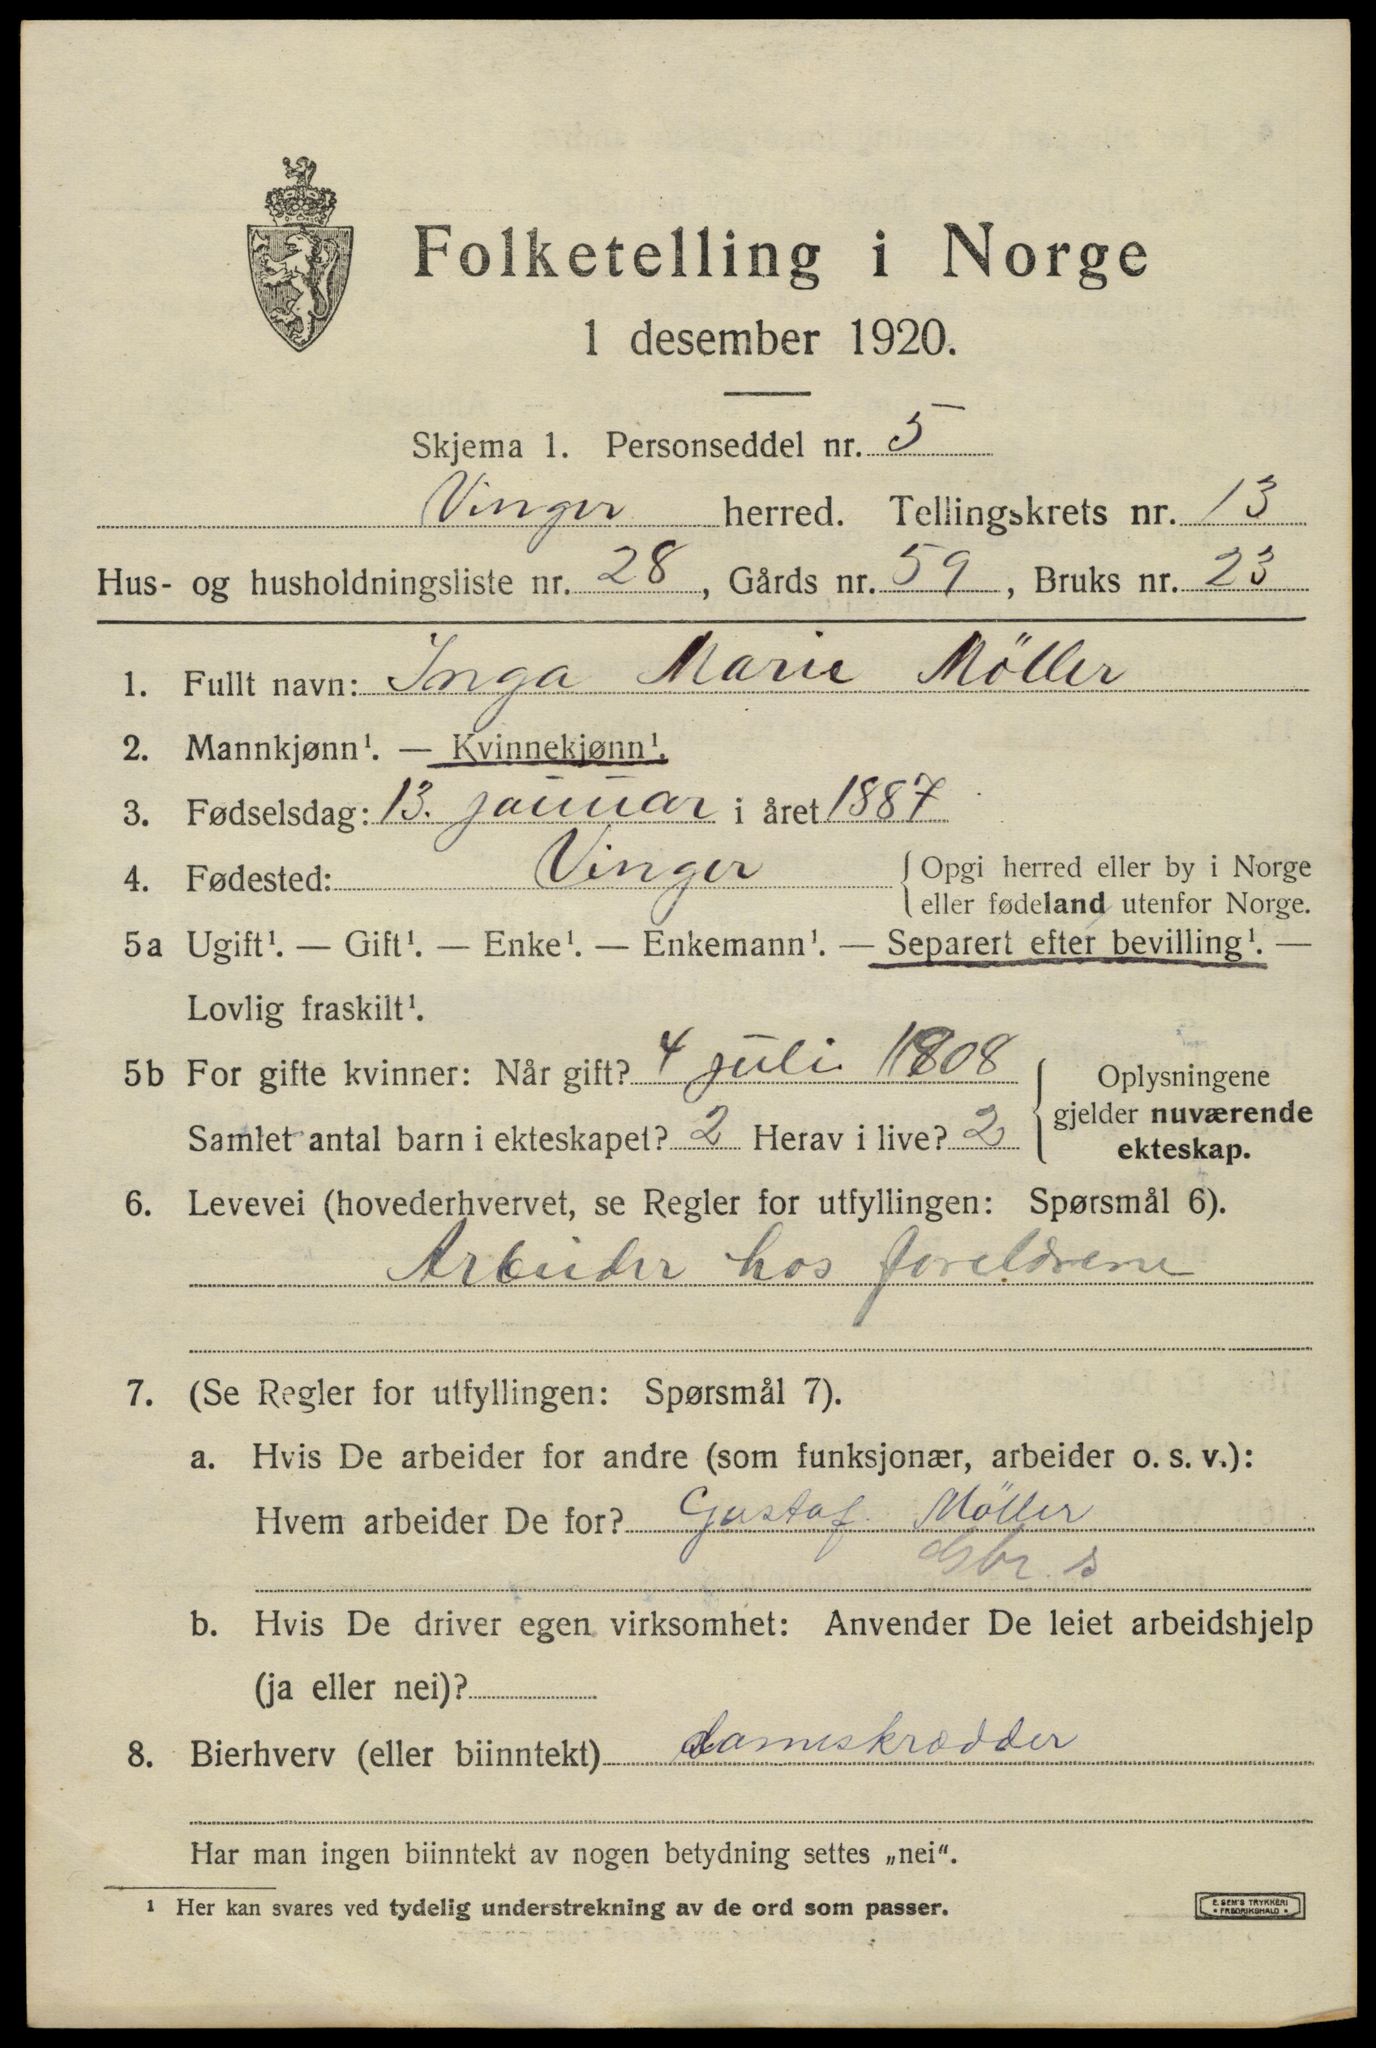 Folketelling i Norge
1 desember 1920.
Skjema 1. Personseddel nr. 5
Vinger herred. Tellingskrets nr. 13
Hus- og husholdningsliste nr. 28, Gårds nr. 59, Bruks nr. 23
1. Fullt navn: Inga Marie Möller
2. Mannkjønn¹. — Kvinnekjønn¹.
3. Fødselsdag: 13. januar i året 1887
4. Fødested: Vinger {Opgi herred eller by i Norge
eller fødeland utenfor Norge.
5a Ugift¹. — Gift¹. — Enke¹. — Enkemann¹. — Separert efter bevilling¹. —
Lovlig fraskilt¹.
5b For gifte kvinner: Når gift? 4 juli 1908 { Oplysningene
Samlet antal barn i ekteskapet? 2 Herav i live? 2 gjelder nuværende
ekteskap.
6. Levevei (hovederhvervet, se Regler for utfyllingen: Spørsmål 6).
Arbeider hos foreldrene
7. (Se Regler for utfyllingen: Spørsmål 7).
a. Hvis De arbeider for andre (som funksjonær, arbeider o. s. v.):
Hvem arbeider De for? Gustaf Möller
Gbr. s
b. Hvis De driver egen virksomhet: Anvender De leiet arbeidshjelp
(ja eller nei)?
8. Bierhverv (eller biinntekt) dameskrædder
Har man ingen biinntekt av nogen betydning settes „nei“.
¹ Her kan svares ved tydelig understrekning av de ord som passer.
E. SEM'S TRYKKERI
• FREDRIKSHALD •